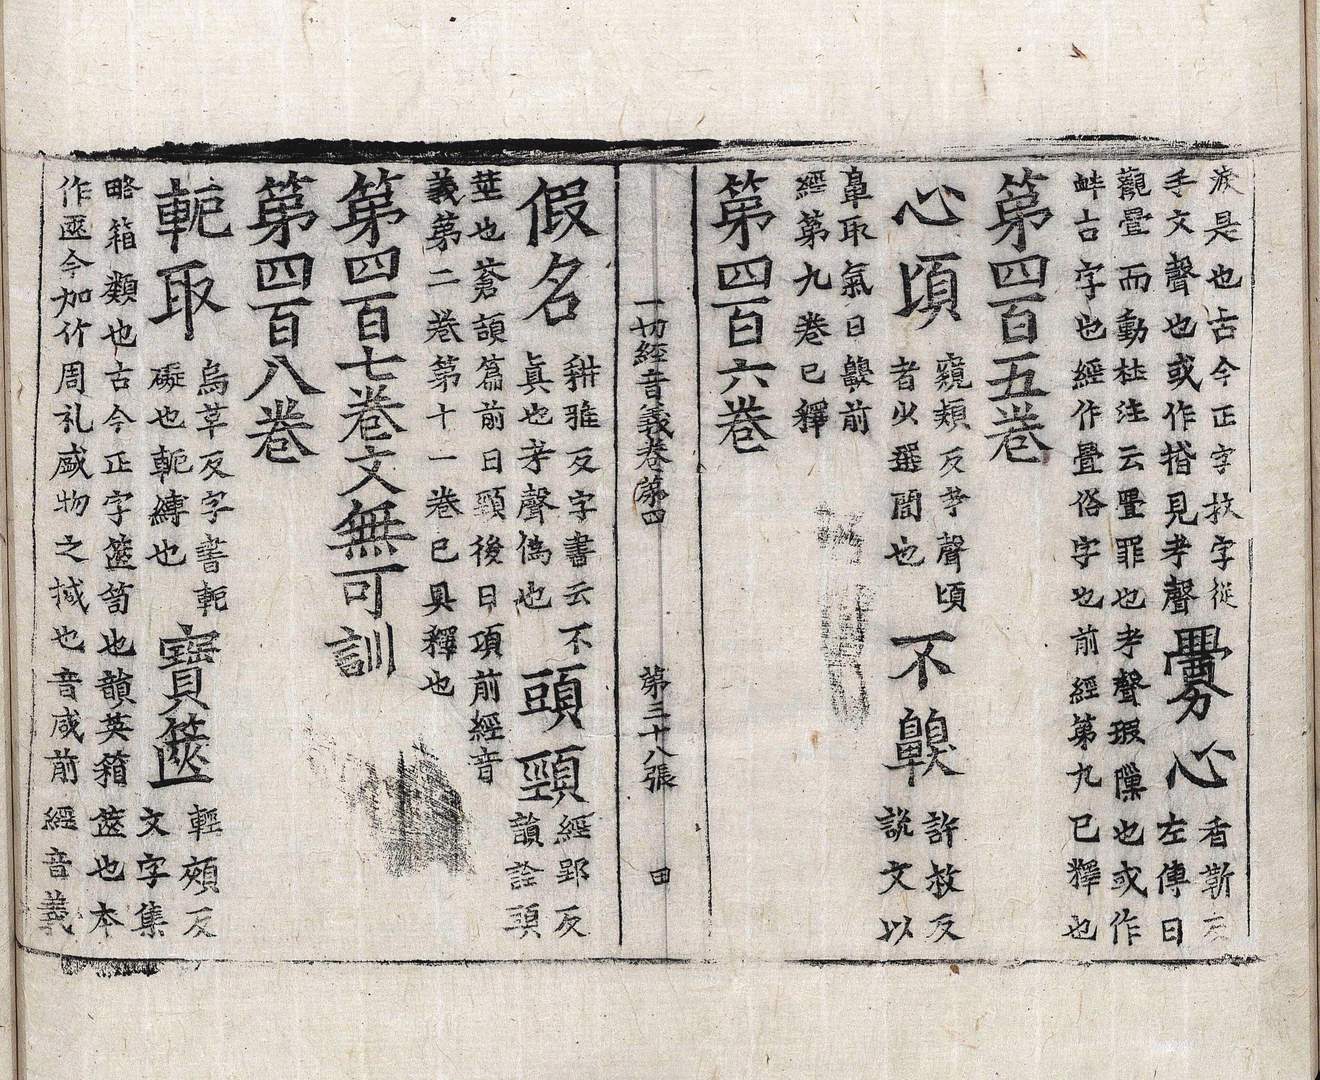 淚是也古今正字抆字從
手文聲也或作㨉見考聲
釁心
香靳反
左傳曰
觀釁而動杜注云釁罪也考聲瑕隟也或作
衅古字也經作舋俗字也前經第九已釋也
第四百五卷
心頃
窺頬反考聲頃
者少選間也
不齅
許救反
說文以
鼻取氣曰齅前
經第九卷已釋
第四百六卷
一切經音義卷第四 第三十八張 田
假名
耕雅反字書云不
真也考聲偽也
頭頸
經郢反
韻詮頭
莖也蒼頡篇前曰頸後曰項前經音
義第二卷第十一卷已具釋也
第四百七卷文無可訓
第四百八卷
軛取
烏革反字書軛
礙也軛縛也
寶篋
輕頰反
文字集
略箱類也古今正字篋笥也韻英箱篋也本
作匧今加竹周礼盛物之椷也音咸前經音義